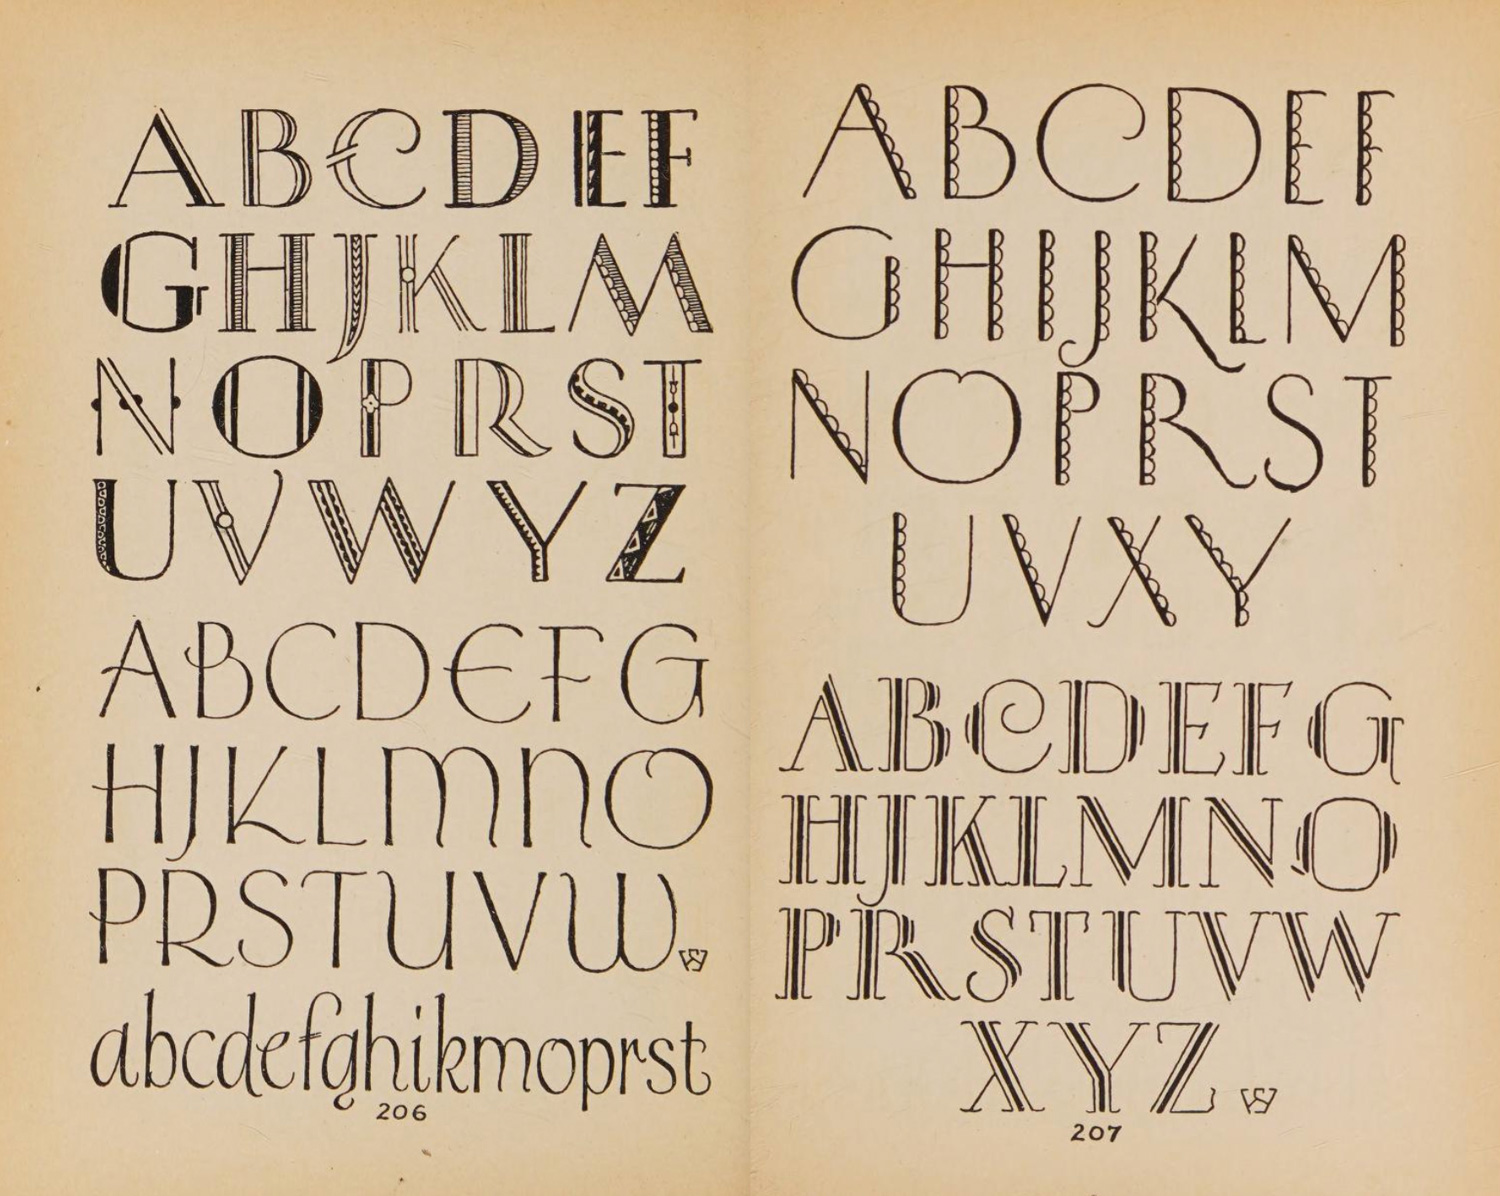 ABCDEF
GHIJKLM
NOPRST
UVWYZ
ABCDEFG
HJKLMNO
PRSTUVW
WS
abcdefghikmoprst
206
ABCDEF
GHIJKLM
NOPRST
UVXY
ABCDEFG
HJKLMNO
PRSTUVW
XYZ
WS
207